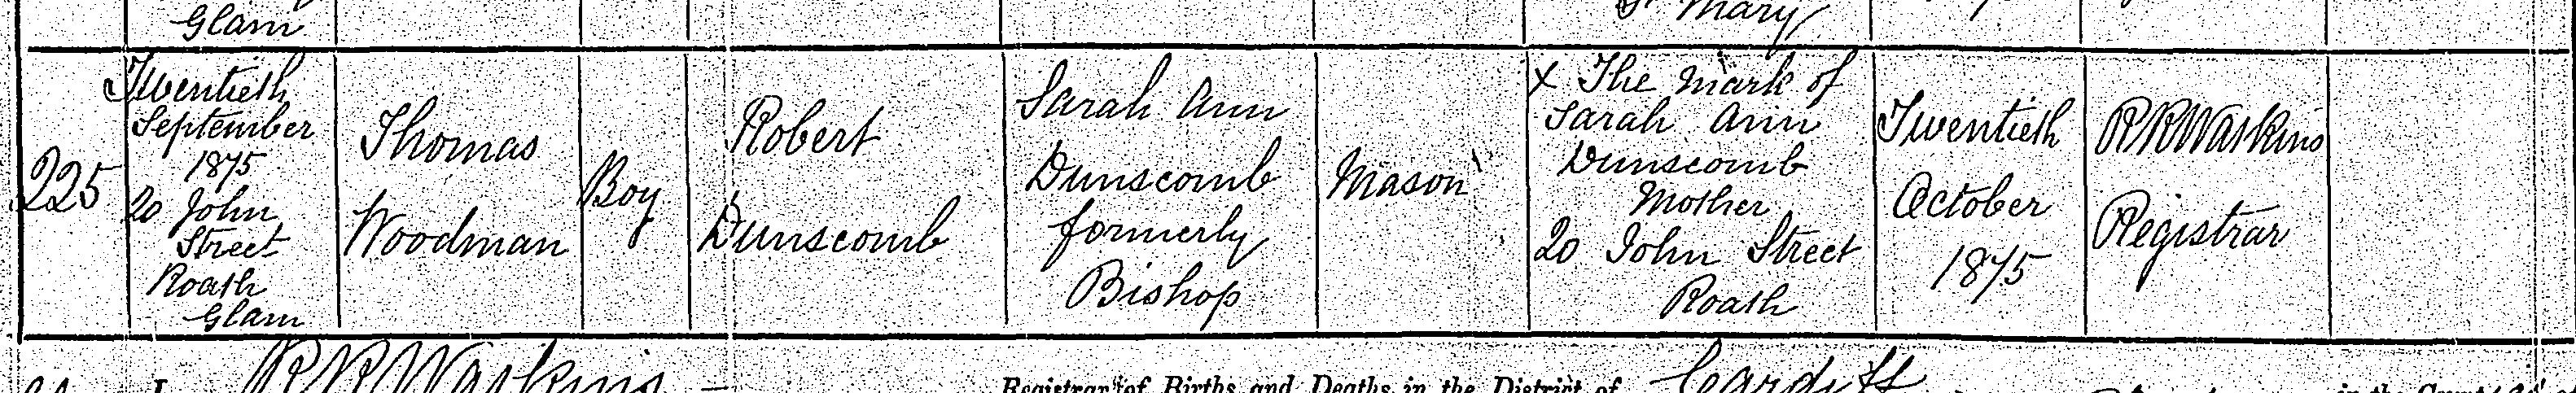 Glam
St Mary
225
Twentieth
September
1875
20 John
Street
Roath
Glam
Thomas
Woodman
Boy
Robert
Dunscomb
Sarah Ann
Dunscomb
formerly
Bishop
Mason
X The mark of
Sarah Ann
Dunscomb
Mother
20 John Street
Roath
Twentieth
October
1875
R R Watkins
Registrar
R R Watkins
Registrar of Births and Deaths in the District of Cardiff
in the County of